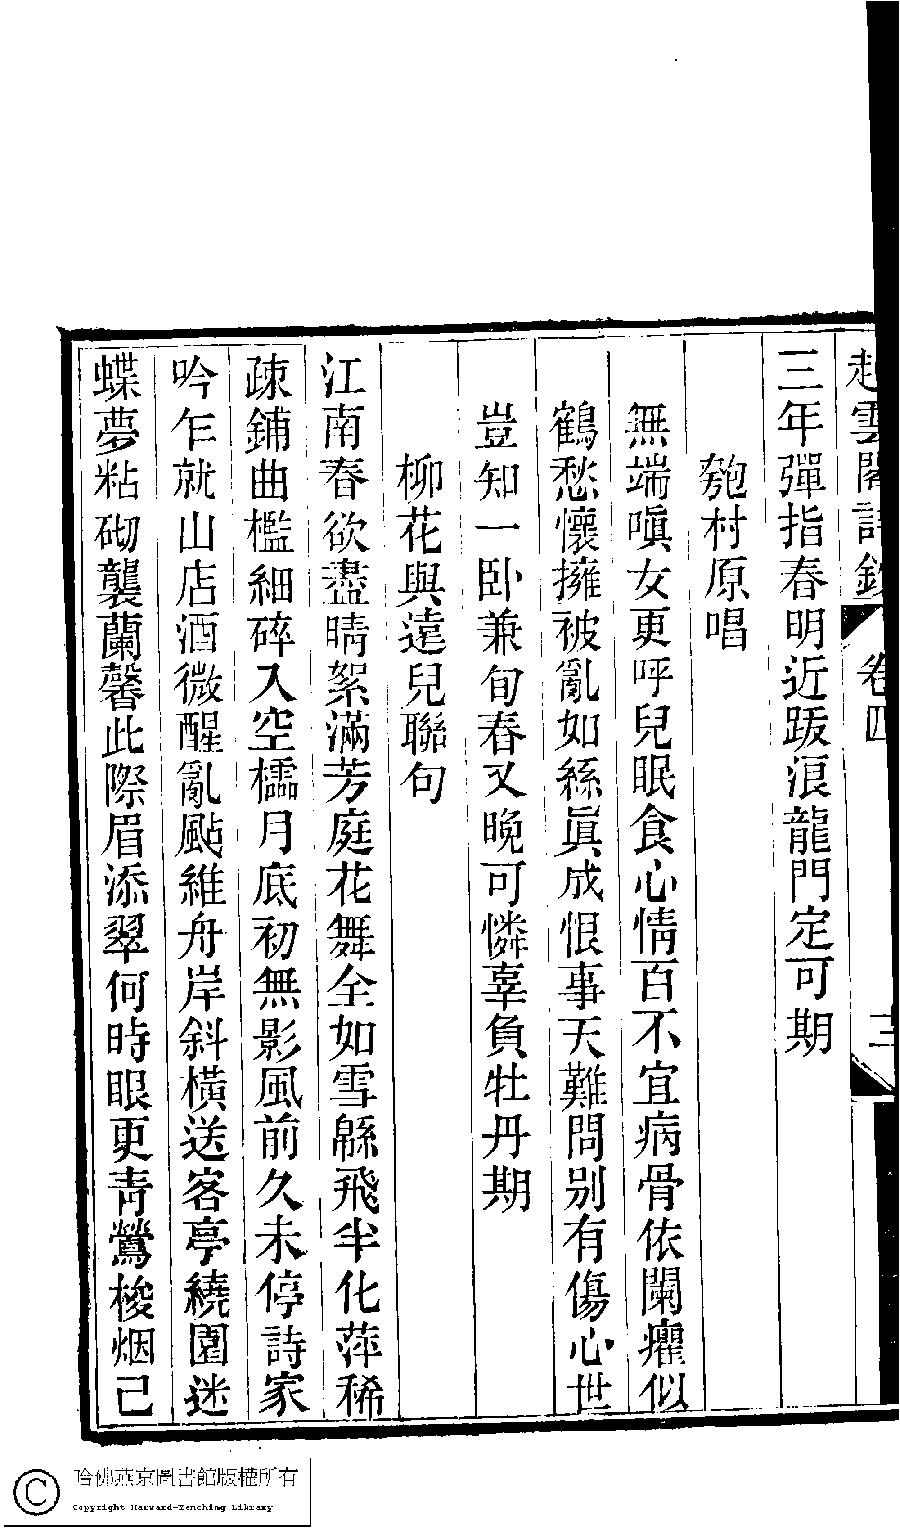 雲閣詩鈔 卷四 三
三年彈指春明近跋浪龍門定可期
匏村原唱
無端嗔女更呼兒眠食心情百不宜病骨依闌癯似
鶴愁懷擁被亂如絲眞成恨事天難問别有傷心世
豈知一卧兼旬春又晚可憐辜負牡丹期
柳花與遠兒聯句
江南春欲盡晴絮滿芳庭花舞全如雪緜飛半化萍稀
疎鋪曲檻細碎入空櫺月底初無影風前久未停詩家
吟乍就山店酒微醒亂颭維舟岸斜橫送客亭繞園迷
蝶夢粘砌襲蘭馨此際眉添翠何時眼更青鶯梭烟己
哈佛燕京圖書館版權所有
Copyright Harvard-Yenching Library